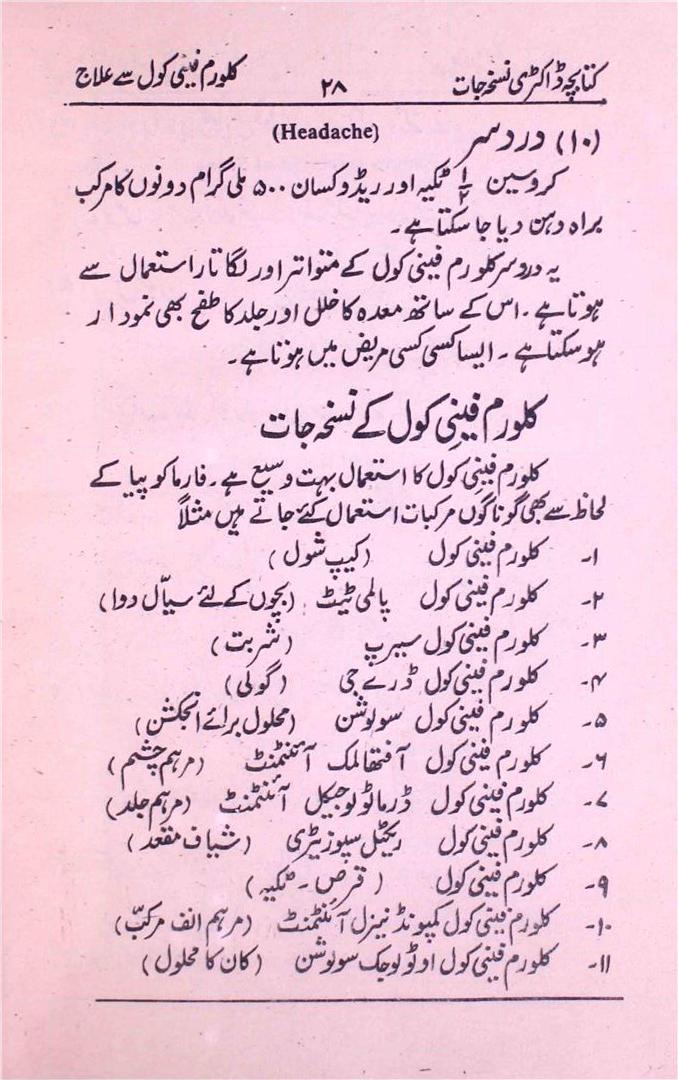 کتابچہ ڈاکٹری نسخہ جات ۲۸ کلورم فینی کول سے علاج
(۱۰) دردِ سر (Headache)
کروسین ۱/۲ ٹکیہ اور ریڈوکسان ۵۰۰ ملی گرام دونوں کا مرکب
براہ دہن دیا جا سکتا ہے۔
یہ دردسر کلورم فینی کول کے متواتر اور لگاتار استعمال سے
ہوتا ہے۔ اس کے ساتھ معدہ کا خلل اور جلد کا طفح بھی نمودار
ہو سکتا ہے۔ ایسا کسی کسی مریض میں ہوتا ہے۔
کلورم فینی کول کے نسخہ جات
کلورم فینی کول کا استعمال بہت وسیع ہے۔ فارما کوپیا کے
لحاظ سے بھی گوناگوں مرکبات استعمال کئے جاتے ہیں مثلاً
۱۔ کلورم فینی کول (کیپ شول)
۲۔ کلورم فینی کول پالمی ٹیٹ (بچوں کے لئے سیّال دوا)
۳۔ کلورم فینی کول سیرپ (شربت)
۴۔ کلورم فینی کول ڈرے جی (گولی)
۵۔ کلورم فینی کول سولوشن (محلول برائے انجکشن)
۶۔ کلورم فینی کول آفتھالمک آئنٹمنٹ (مرہم چشم)
۷۔ کلورم فینی کول ڈرماٹولوجیکل آئنٹمنٹ (مرہم جلد)
۸۔ کلورم فینی کول ریکٹل سپوزیٹری (شیاف مقعد)
۹۔ کلورم فینی کول (قرص۔ ٹکیہ)
۱۰۔ کلورم فینی کول کمپونڈ نیزل آئنٹمنٹ (مرہم انف مرکّب)
۱۱۔ کلورم فینی کول اوٹولوجک سولوشن (کان کا محلول)